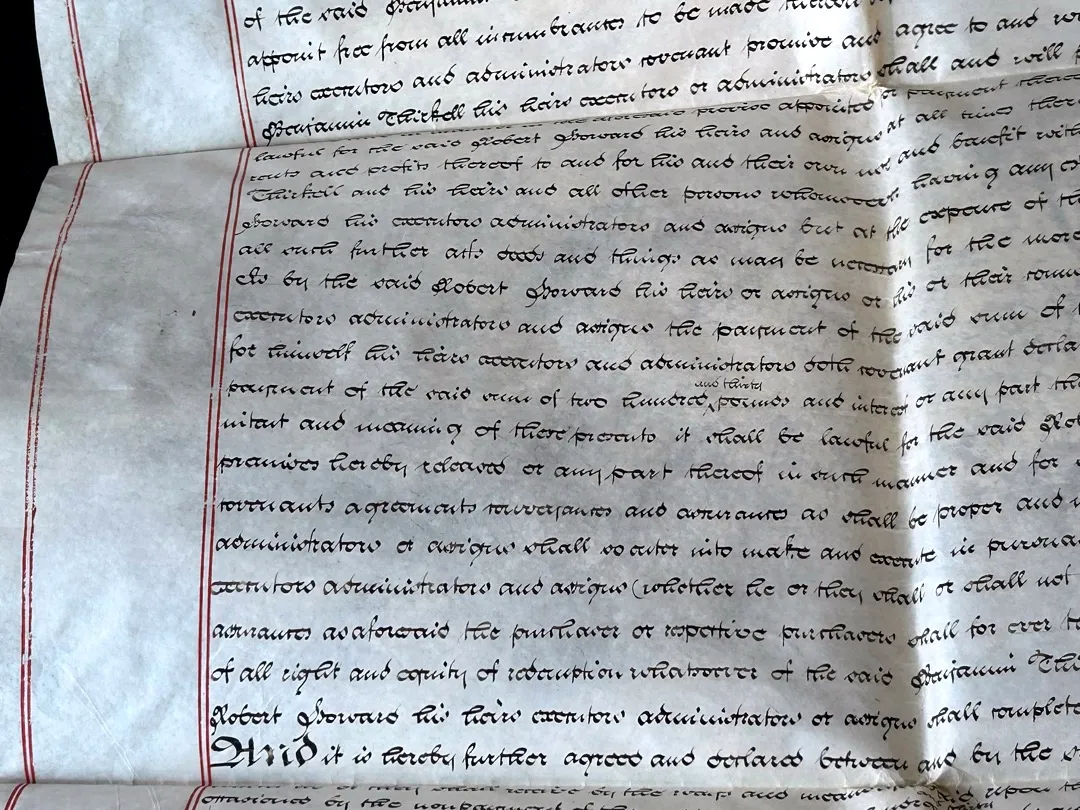 of the said Benjamin
appoint free from all incumbrances to be made thereon
heirs executors and administrators covenant promise and agree to and
Benjamin Thirkell his heirs executors or administrators shall and will
appointed or payment
lawful for the said Robert Howard his heirs and assigns at all times
rents and profits thereof to and for his and their own use and benefit
Thirkell and his heirs and all other persons whomsoever having any
Howard his executors administrators and assigns but at the expense of
all such further acts deeds and things as may be necessary for the more
&c by the said Robert Howard his heirs or assigns or his or their
executors administrators and assigns the payment of the said sum of
for himself his heirs executors and administrators doth covenant grant
and thirty
payment of the said sum of two hundred pounds and interest or any part
intent and meaning of these presents it shall be lawful for the said
premises hereby released or any part thereof in such manner and for
covenants agreements conveyances and assurances as shall be proper and
administrators or assigns shall so enter into make and execute in
executors administrators and assigns (whether he or they shall or shall not
assurances as aforesaid the purchaser or respective purchasers shall for ever
of all right and equity of redemption whatsoever of the said Benjamin
Robert Howard his heirs executors administrators or assigns shall complete
And it is hereby further agreed and declared between and by the
occasioned by the nonpayment of the